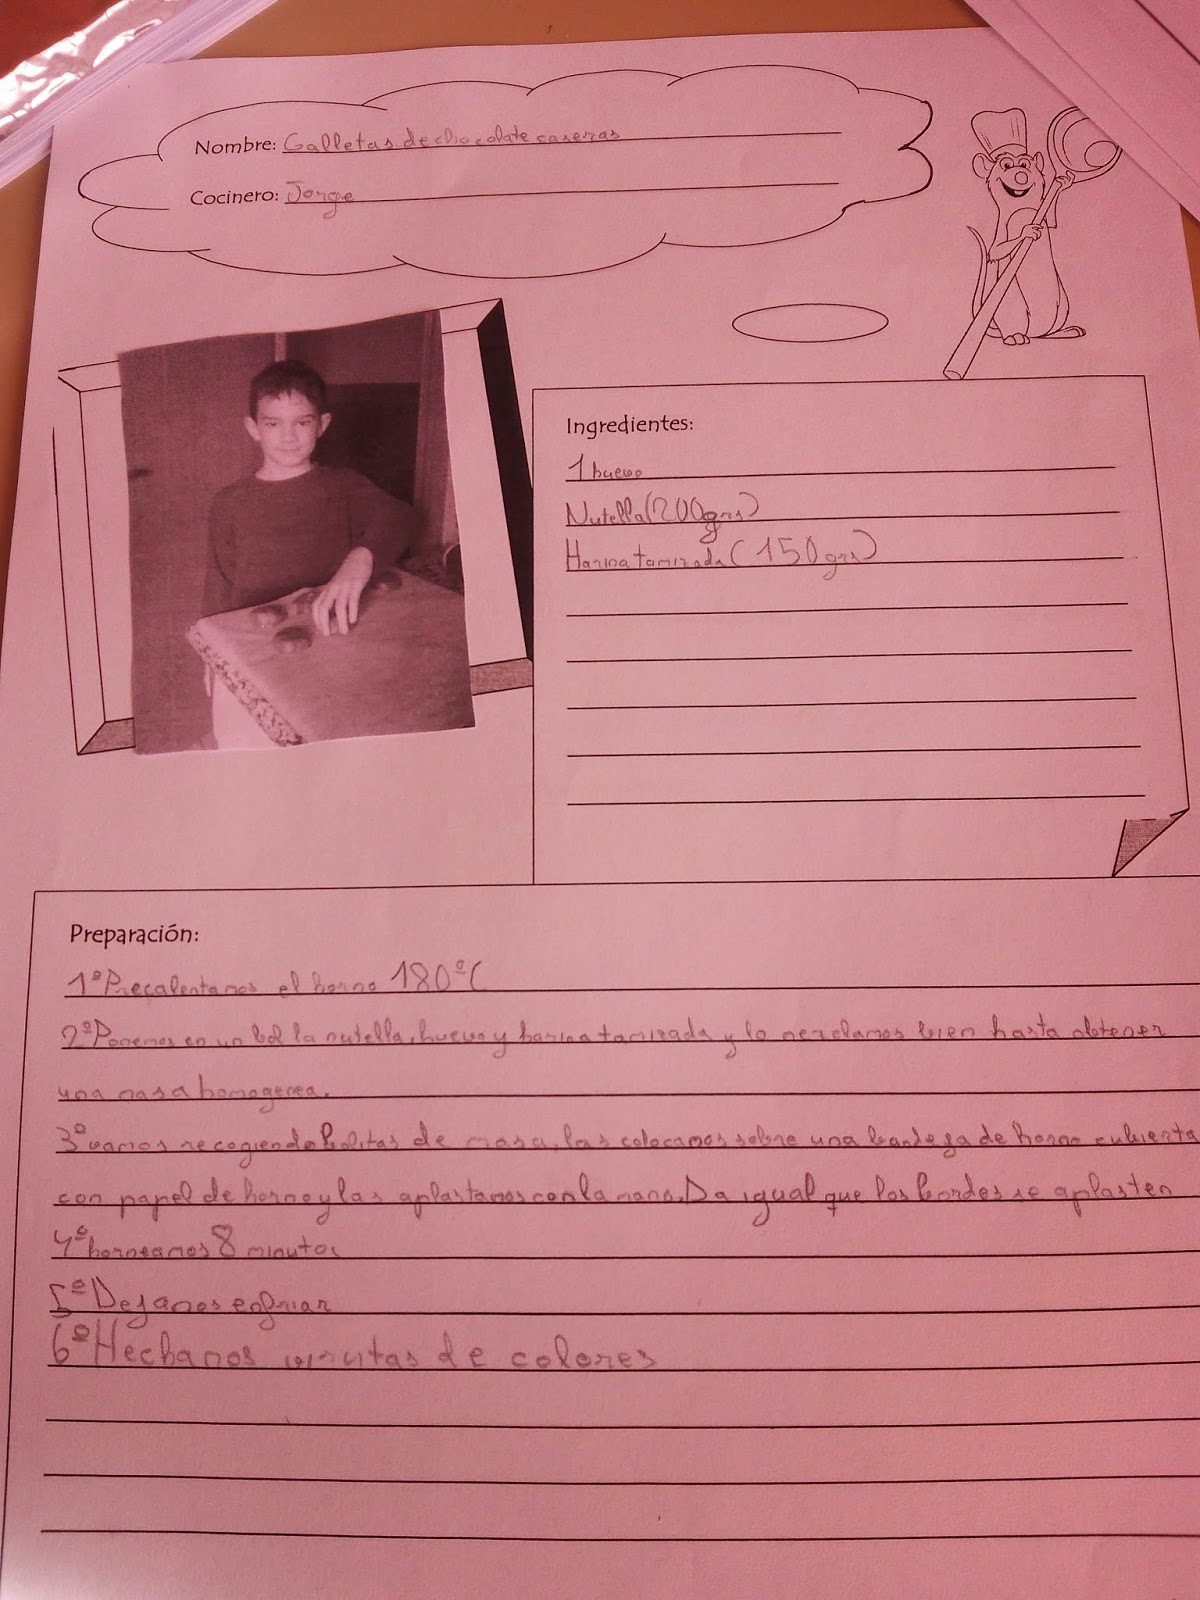 Nombre: Galletas de chocolate caseras
Cocinero: Jorge
Ingredientes:
1 huevo
Nutella (200 grs)
Harina tamizada (150 grs)
Preparación:
1º Precalentamos el horno 180ºC
2º Ponemos en un bol la nutella, huevo y harina tamizada y lo mezclamos bien hasta obtener
una masa homogenea.
3º vamos recogiendo bolitas de masa, las colocamos sobre una bandeja de horno cubierta
con papel de horno y las aplastamos con la mano. Da igual que los bordes se aplasten
4º horneamos 8 minutos
5º Dejamos enfriar
6º Hechamos virutas de colores